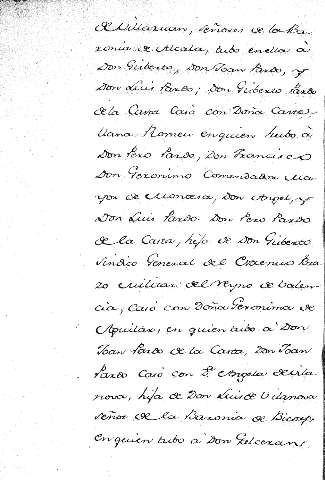 de Villaruan, señores de la Ba-
ronia de Alcala, tubo en ella à
Don Gisberto, Don Joan Pardo, y
Don Luis Pardo; Don Gisberto Pardo
de la Casta Casó con Doña Caste-
llana Romeu en quien hubo à
Don Pero Pardo, Don Francisco
Don Geronimo Comendador Ma-
yor de Montesa, Don Angel, y
Don Luis Pardo. Don Pero Pardo
de la Casta, hijo de Don Gisberto
Sindico General del Braz
zo Militar del Reyno de Valen-
cia, Casó con Doña Geronima de
Aguilar, en quien tubo à Don
Joan Pardo de la Casta, Don Joan
Pardo Casó con D.ª Angela de Vila
nova, hija de Don Luis de Vilanova
Señor de la Baronia de Bicorp
en quien tubo à Don Gelceran,